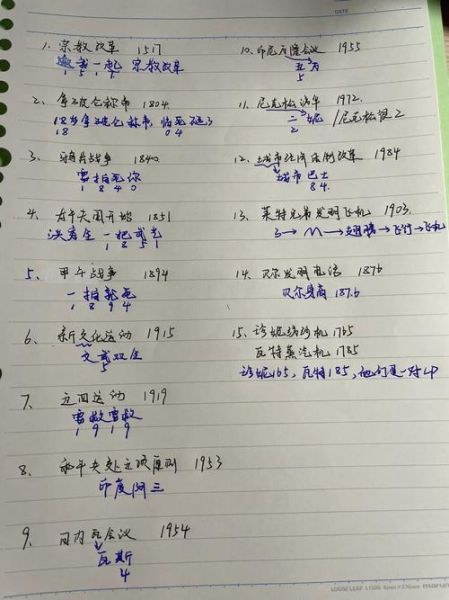 DATE
1. 宗教改革 1517
邀我一起 宗教改革
1 5 1 7
2. 拿破仑称帝 1804
18岁拿破仑称帝，临死
18 04
3. 鸦片战争 1840
要拍死你
1 8 4 0
4. 太平天国开始 1851
洪秀全 一把武
1 8 5 1
5. 甲午战争 1894
一拍就死
1 8 9 4
6. 新文化运动 1915
文武双全
5
7. 五四运动 1919
要救要救
1 9 1 9
8. 和平共处五项原则 1953
印度阿三
9. 日内瓦会议 1954
瓦斯
4
10. 印尼万隆会议 1955
五万
5
11. 尼克松访华 1972
二妮 / 尼克松很2
2
12. 城市经济体制改革 1984
城市巴士
84
13. 莱特兄弟发明飞机 1903
3→ →翅膀→飞行→飞机
14. 贝尔发明电话 1876
贝尔身高 187.6
15. 珍妮纺纱机 1765
瓦特蒸汽机 1785
珍妮165，瓦特185，他们是一对CP
LOOSE LEAF